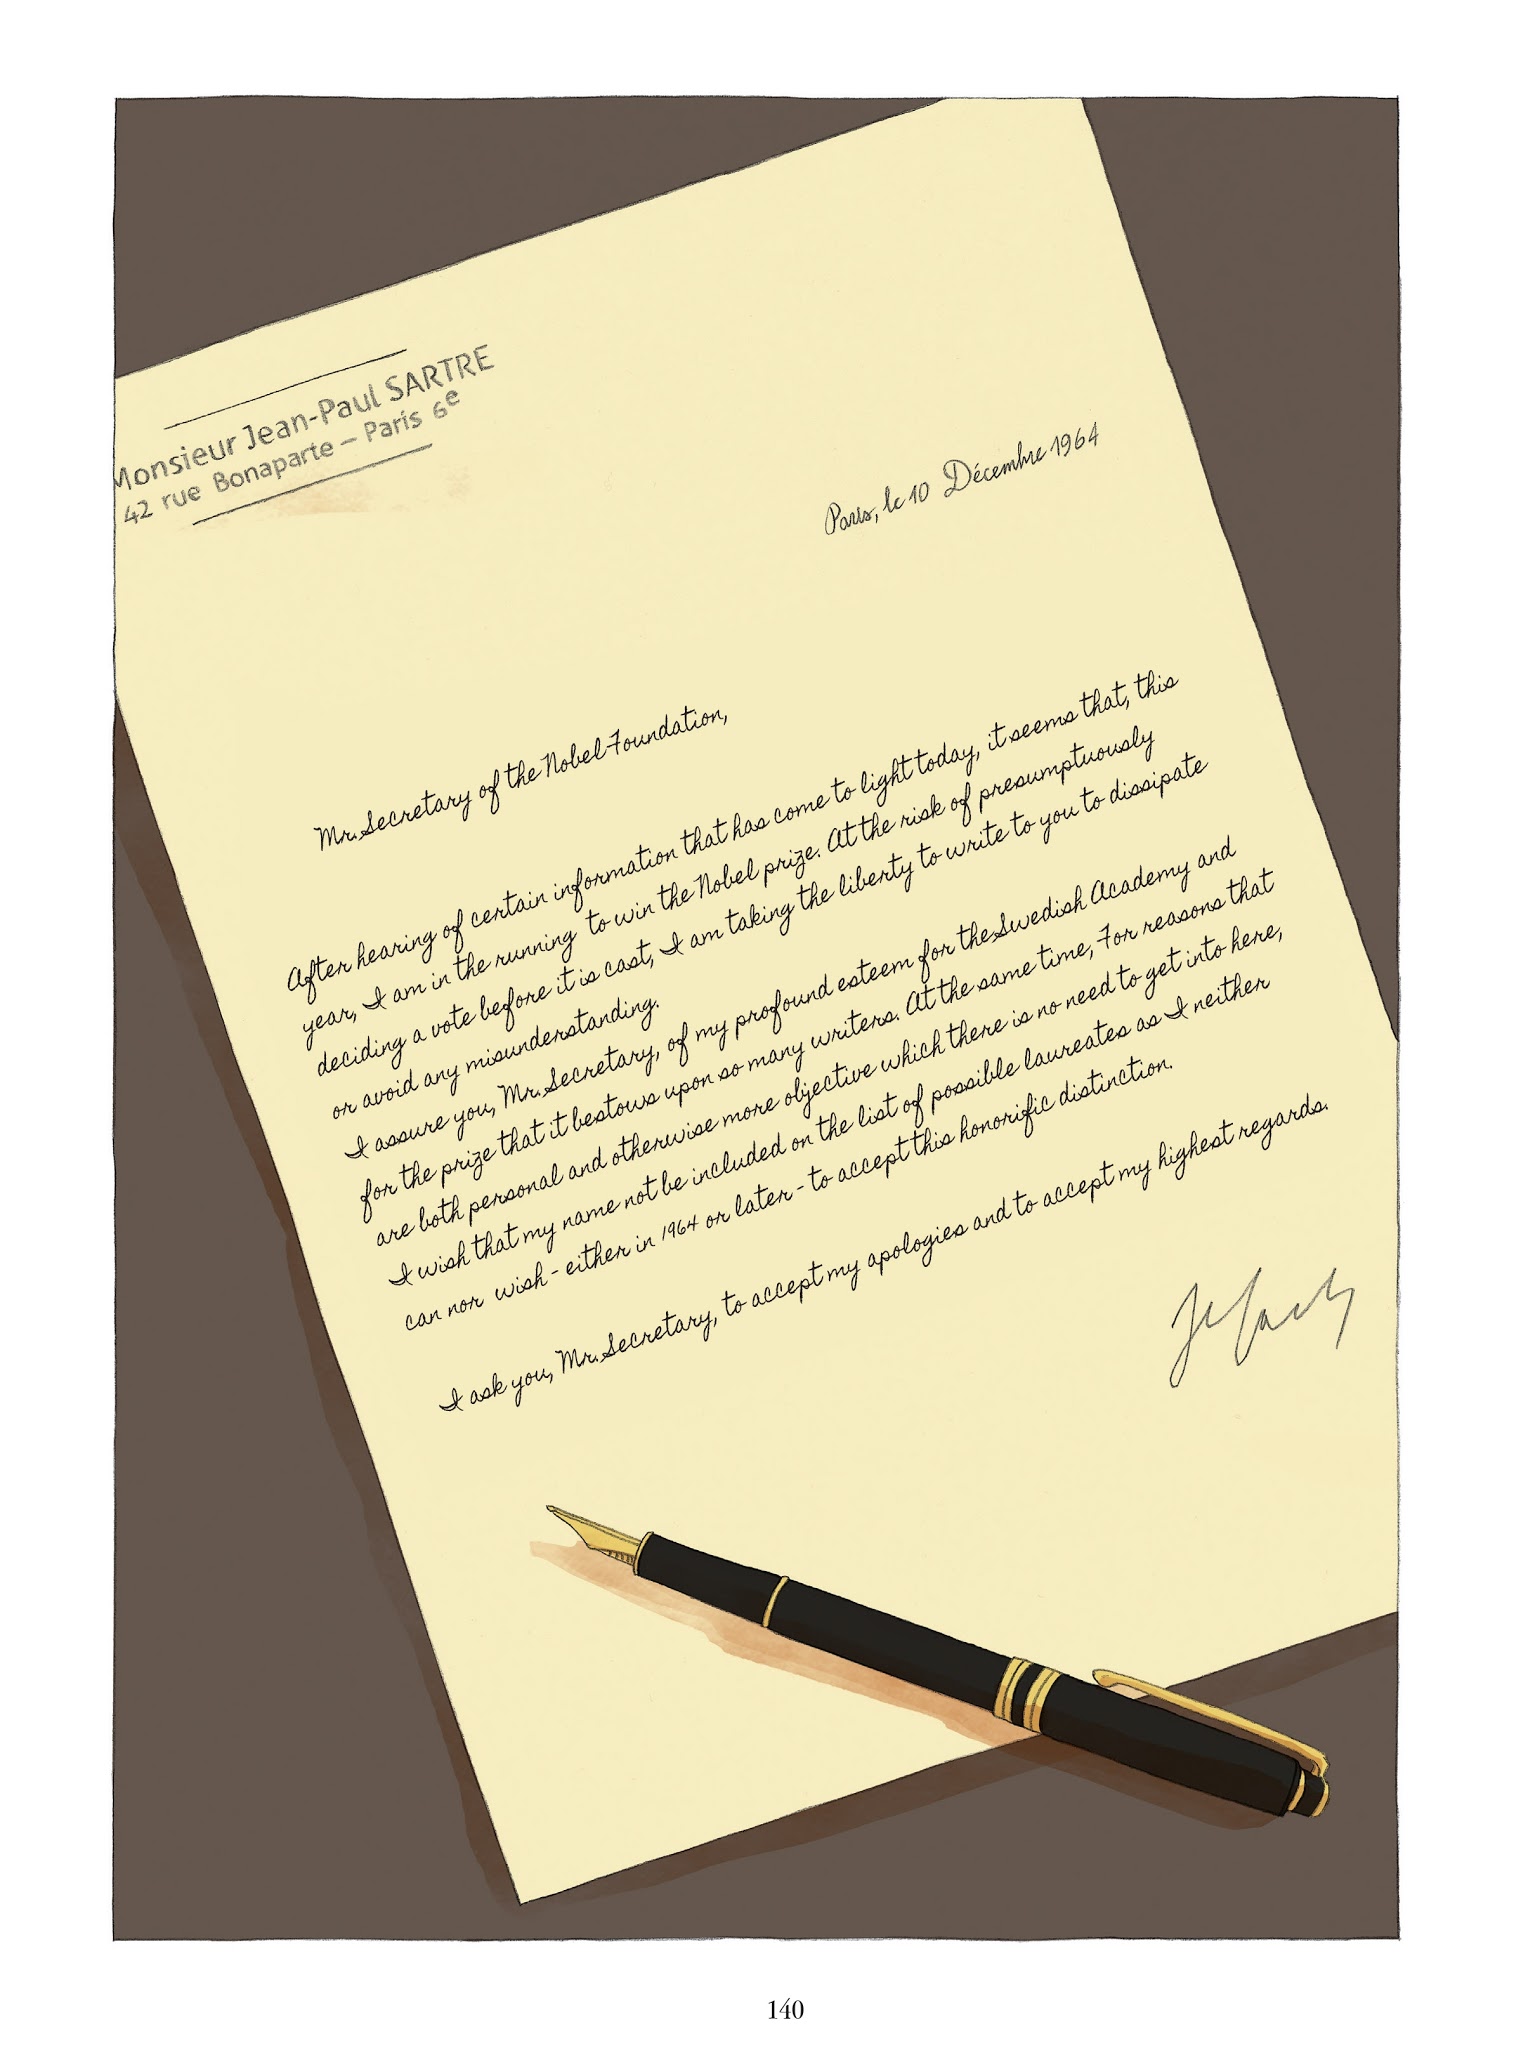 Monsieur Jean-Paul SARTRE
42 rue Bonaparte – Paris 6e
Paris, le 10 Décembre 1964
Mr. Secretary of the Nobel Foundation,
After hearing of certain information that has come to light today, it seems that, this
year, I am in the running to win the Nobel prize. At the risk of presumptuously
deciding a vote before it is cast, I am taking the liberty to write to you to dissipate
or avoid any misunderstanding.
I assure you, Mr. Secretary, of my profound esteem for the Swedish Academy and
for the prize that it bestows upon so many writers. At the same time, For reasons that
are both personal and otherwise more objective which there is no need to get into here,
I wish that my name not be included on the list of possible laureates as I neither
can nor wish - either in 1964 or later - to accept this honorific distinction.
I ask you, Mr. Secretary, to accept my apologies and to accept my highest regards.
140